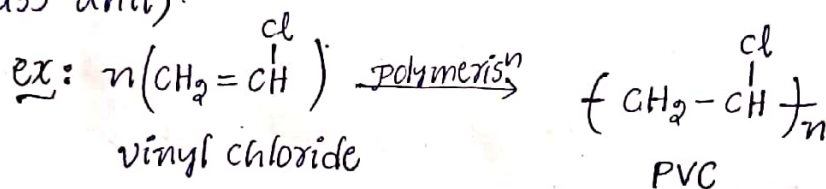 ass unit).
Cl Cl
ex: n(CH2 = CH) polymerisn → -(CH2 - CH)-n
vinyl chloride PVC